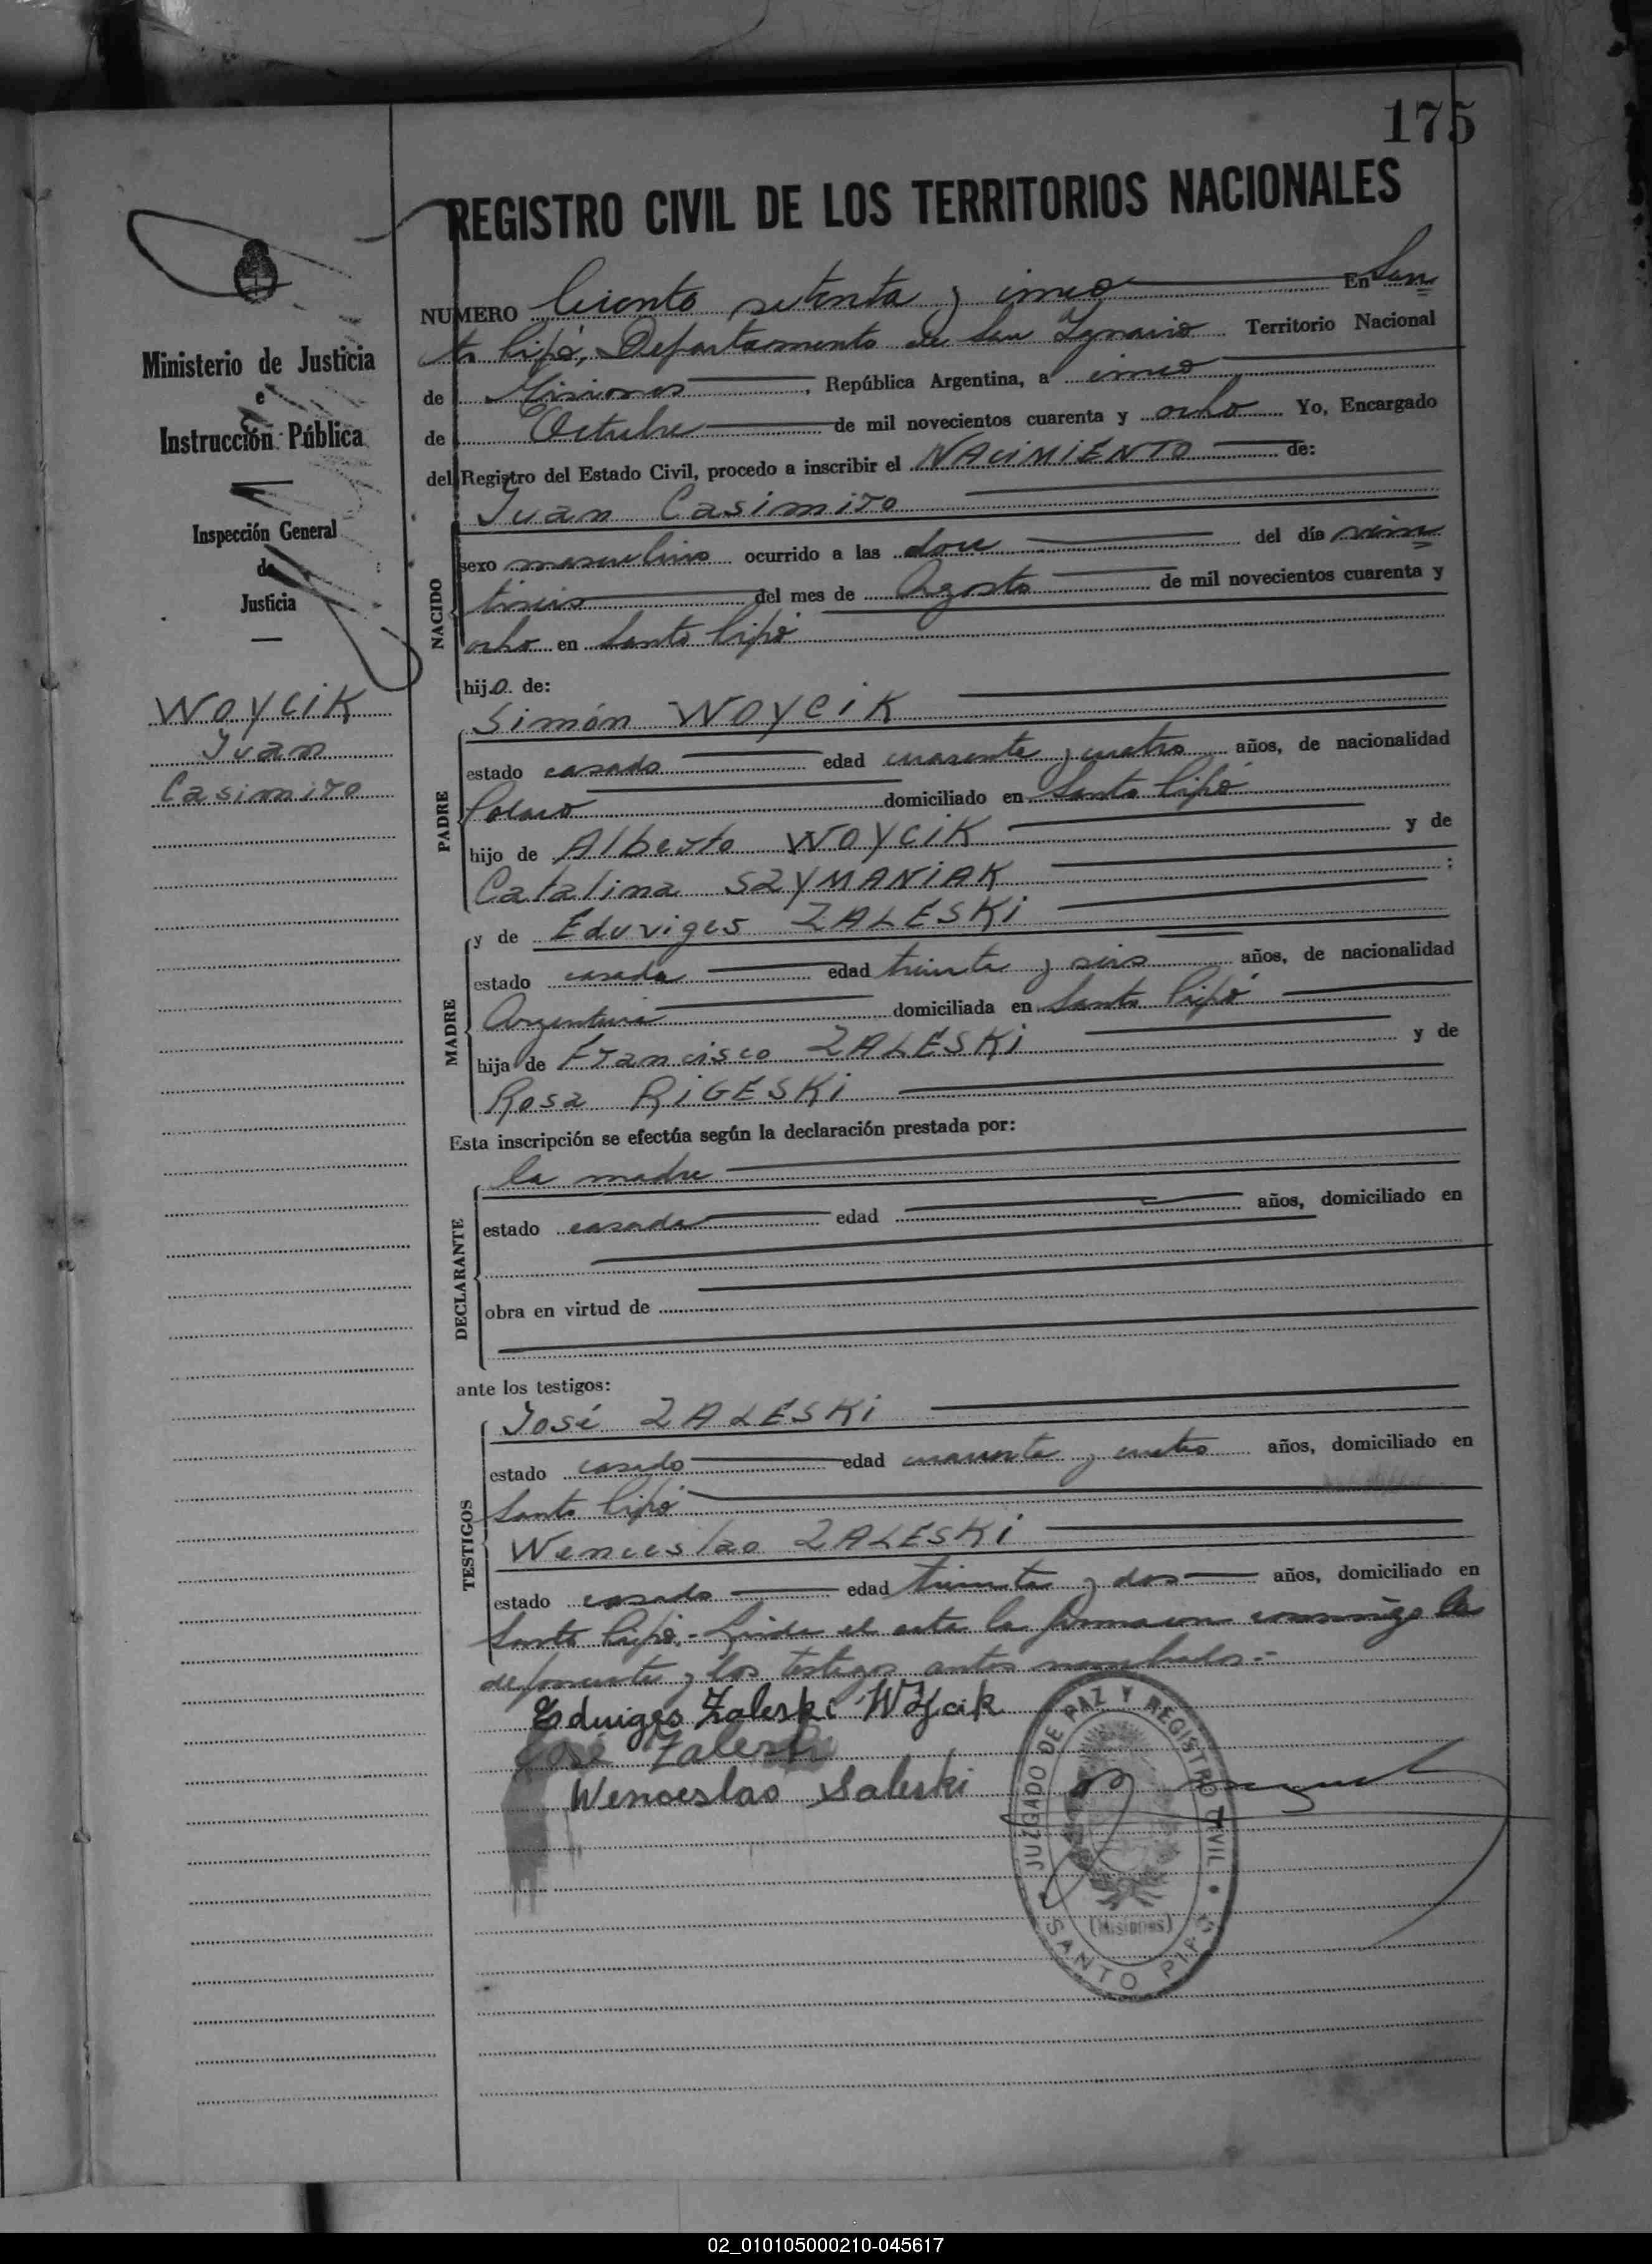 175
REGISTRO CIVIL DE LOS TERRITORIOS NACIONALES
NUMERO Ciento setenta y cinco En San
to Pipó, Departamento de San Ignacio Territorio Nacional
de Misiones, República Argentina, a cinco
de Octubre de mil novecientos cuarenta y ocho Yo, Encargado
del Registro del Estado Civil, procedo a inscribir el NACIMIENTO de:
Juan Casimiro
NACIDO
sexo masculino ocurrido a las doce del día vein
tiseis del mes de Agosto de mil novecientos cuarenta y
ocho en Santo Pipó
hijo de:
Simón WOYCIK
PADRE
estado casado edad cuarenta y cuatro años, de nacionalidad
Polaco domiciliado en Santo Pipó
hijo de Alberto WOYCIK y de
Catalina SZYMANIAK :
y de Eduviges ZALESKI
MADRE
estado casada edad treinta y seis años, de nacionalidad
Argentina domiciliada en Santo Pipó
hija de Francisco ZALESKI y de
Rosa RIGESKI
Esta inscripción se efectúa según la declaración prestada por:
la madre
DECLARANTE
estado casada edad años, domiciliado en
obra en virtud de
ante los testigos:
José ZALESKI
TESTIGOS
estado casado edad cuarenta y cuatro años, domiciliado en
Santo Pipó
Wenceslao ZALESKI
estado casado edad treinta y dos años, domiciliado en
Santo Pipó.- Leida el acta la firmaron conmigo la
deponente y los testigos antes nombrados.-
Eduiges Zaleski Wójcik
José Zaleski
Wenceslao Zaleski
JUZGADO DE PAZ Y REGISTRO CIVIL
(Misiones)
SANTO PIPÓ
Ministerio de Justicia
e
Instrucción Pública
Inspección General
de
Justicia
WOYCIK
Juan
Casimiro
02_010105000210-045617